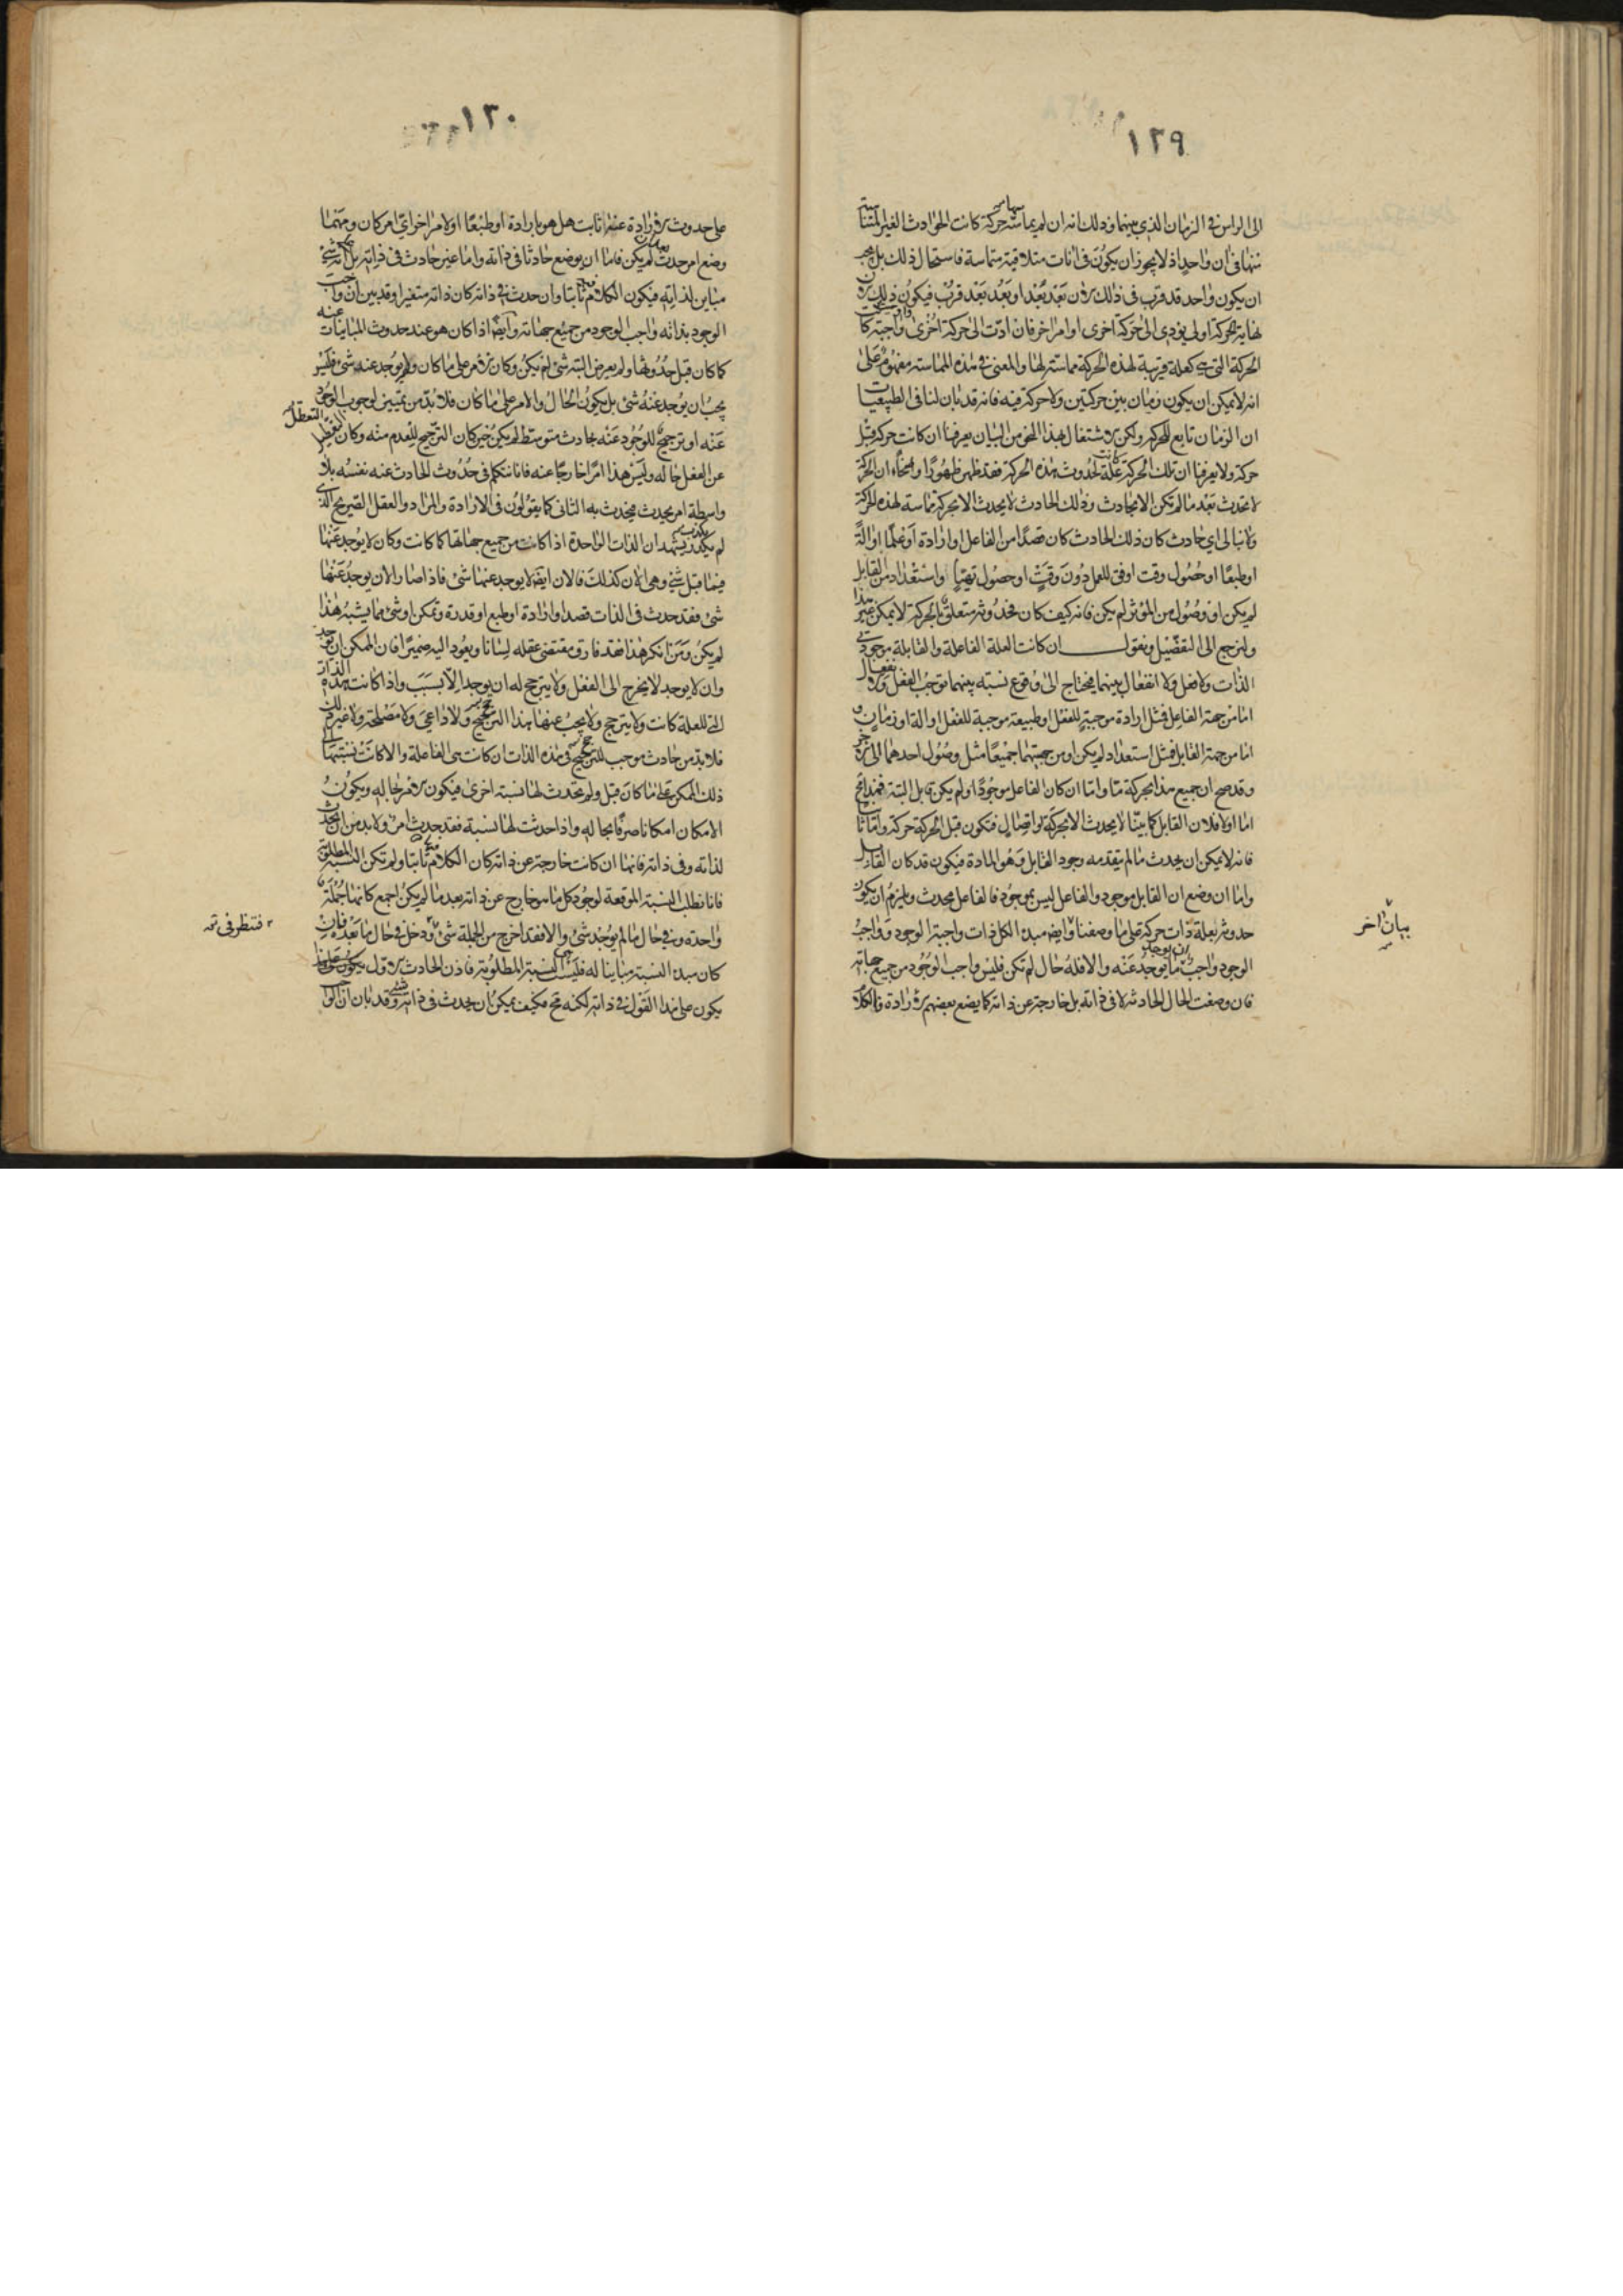 ١٢٩
الى الواس فى الزمان الذى بينهما وذلك انه ان لم يماسه حركة كانت الحوادث الغير المتنا
منها فى ان واحد اذ لا يجوز ان يكون فى انات متلاقية متماسة فاستحال ذلك بل يجب
ان يكون واحد قد قرب فى ذلك الان بعد بعد او بعد بعد قرب فيكون ذلك الان
نهاية حركة اولى يؤدى الى حركة اخرى او امر اخر فان ادت الى حركة اخرى واجبة كا
الحركة التى هى كعلة قريبة لهذه الحركة مماسة لها والمعنى فى هذه المماسة مفهوم على
انه لا يمكن ان يكون زمان بين حركتين ولا حركة فيه فانه قد بان لنا فى الطبيعيات
ان الزمان تابع للحركة ولكن الاشتغال بهذا النحو من البيان يعرفنا ان كانت حركة قبل
حركة ولا يعرفنا ان تلك الحركة علة لحدوث هذه الحركة فقد ظهر ظهورا واضحا ان الحركة
لا تحدث بعد ما لم تكن الا بحادث وذلك الحادث لا يحدث الا بحركة مماسة لهذه الحركة
ولا نبالى اى حادث كان ذلك الحادث كان قصدا من الفاعل او ارادة او علما او الة
او طبعا او حصول وقت اوفق للعمل دون وقت او حصول تهيا واستعداد من القابل
لم يكن او وصول من المؤثر لم يكن فانه كيف كان فحدوثه متعلق بالحركة لا يمكن غير هذا
ولنرجع الى التفصيل ونقول ان كانت العلة الفاعلة والقابلة موجودتى
الذات ولا فعل ولا انفعال بينهما فيحتاج الى وقوع نسبة بينهما توجب الفعل والانفعال
اما من جهة الفاعل فمثل ارادة موجبة للفعل او طبيعة موجبة للفعل او الة او زمان و
اما من جهة القابل فمثل استعداد لم يكن او من جهتيهما جميعا مثل وصول احدهما الى الاخر
وقد صح ان جميع هذا بحركة ما واما ان كان الفاعل موجودا ولم يكن قابل البتة فهذا مح
اما اولا فلان القابل كما بينا لا يحدث الا بحركة واتصال فتكون قبل الحركة حركة واما ثانيا
فانه لا يمكن ان يحدث ما لم يتقدمه وجود القابل وهو المادة فيكون قد كان القابل
واما ان وضع ان القابل موجود والفاعل ليس بموجود فالفاعل محدث ويلزم ان يكون
حدوثه بعلة ذات حركة على ما وصفنا وايضا مبدء الكل ذات واجبة الوجود وواجب
الوجود واجب ان يوجد ما يوجد عنه والا فله حال لم تكن فليس واجب الوجود من جميع جهاته
فان وضعت الحال الحادثة لا فى ذاته بل خارجة عن ذاته كما يضع بعضهم الارادة فالكلا
بيان اخر
١٣٠
على حدوث الارادة عنه ثابت هل هو بارادة او طبعا او لامر اخر اى امر كان ومهما
وضع امر حدث لم يكن فاما ان يوضع حادثا فى ذاته واما غير حادث فى ذاته بل انه شئ
مباين لذاته فيكون الكلام ثابتا وان حدث فى ذاته كان ذاته متغيرا وقد بين ان واجب
الوجود بذاته واجب الوجود من جميع جهاته وايضا اذا كان هو عند حدوث المباينات عنه
كما كان قبل حدوثها ولم يعرض البتة شئ لم يكن وكان الامر على ما كان ولم يوجد عنه شئ فليس
يجب ان يوجد عنه شئ بل يكون الحال والامر على ما كان فلا بد من تمييز لوجوب الوجود
عنه او ترجيح للوجود عنه بحادث متوسط لم يكن حين كان الترجيح للعدم منه وكان التعطل
عن الفعل حاله وليس هذا امرا خارجا عنه فانا نتكلم فى حدوث الحادث عنه نفسه بلا
واسطة امر يحدث فيحدث به الثانى كما يقولون فى الارادة والمراد والعقل الصريح الذى
لم يكدر يشهد ان الذات الواحدة اذا كانت من جميع جهاتها كما كانت وكان لا يوجد عنها
فيما قبل شئ وهى الان كذلك فالان ايضا لا يوجد عنها شئ فاذا صار الان يوجد عنها
شئ فقد حدث فى الذات قصد او ارادة او طبع او قدرة وتمكن او شئ مما يشبه هذا
لم يكن ومن انكر هذا فقد فارق مقتضى عقله لسانا ويعود اليه ضميرا فان الممكن ان يوجد
وان لا يوجد لا يخرج الى الفعل ولا يترجح له ان يوجد الا بسبب واذا كانت هذه الذات
التى للعلة كانت ولا يترجح ولا يجب عنها هذا الترجيح ولا داعى ولا مصلحة ولا غير ذلك
فلا بد من حادث موجب للترجيح فى هذه الذات ان كانت هى الفاعلة والا كانت نسبتها الى
ذلك الممكن على ما كان قبل ولم تحدث لها نسبة اخرى فيكون الامر بحاله ويكون
الامكان امكانا صرفا بحاله واذا حدثت لها نسبة فقد حدث امر ولا بد من ان يحدث
لذاته وفى ذاته فانها ان كانت خارجة عن ذاته كان الكلام ثابتا ولم تكن النسبة المطلوبة
فانا نطلب النسبة الموقعة لوجود كل ما هو خارج عن ذاته بعد ما لم يكن اجمع كانها جملة
واحدة وفى حال ما لم يوجد شئ والا فقد اخرج من الجملة شئ ودخل فى حال ما بعده فان
كان مبدء النسبة مباينا له فليست النسبة المطلوبة فاذن الحادث الاول يكون على هذا
يكون على هذا القول فى ذاته لكنه مح فكيف يمكن ان يحدث فى ذاته شئ وقد بان ان الوا
فتنظر فى